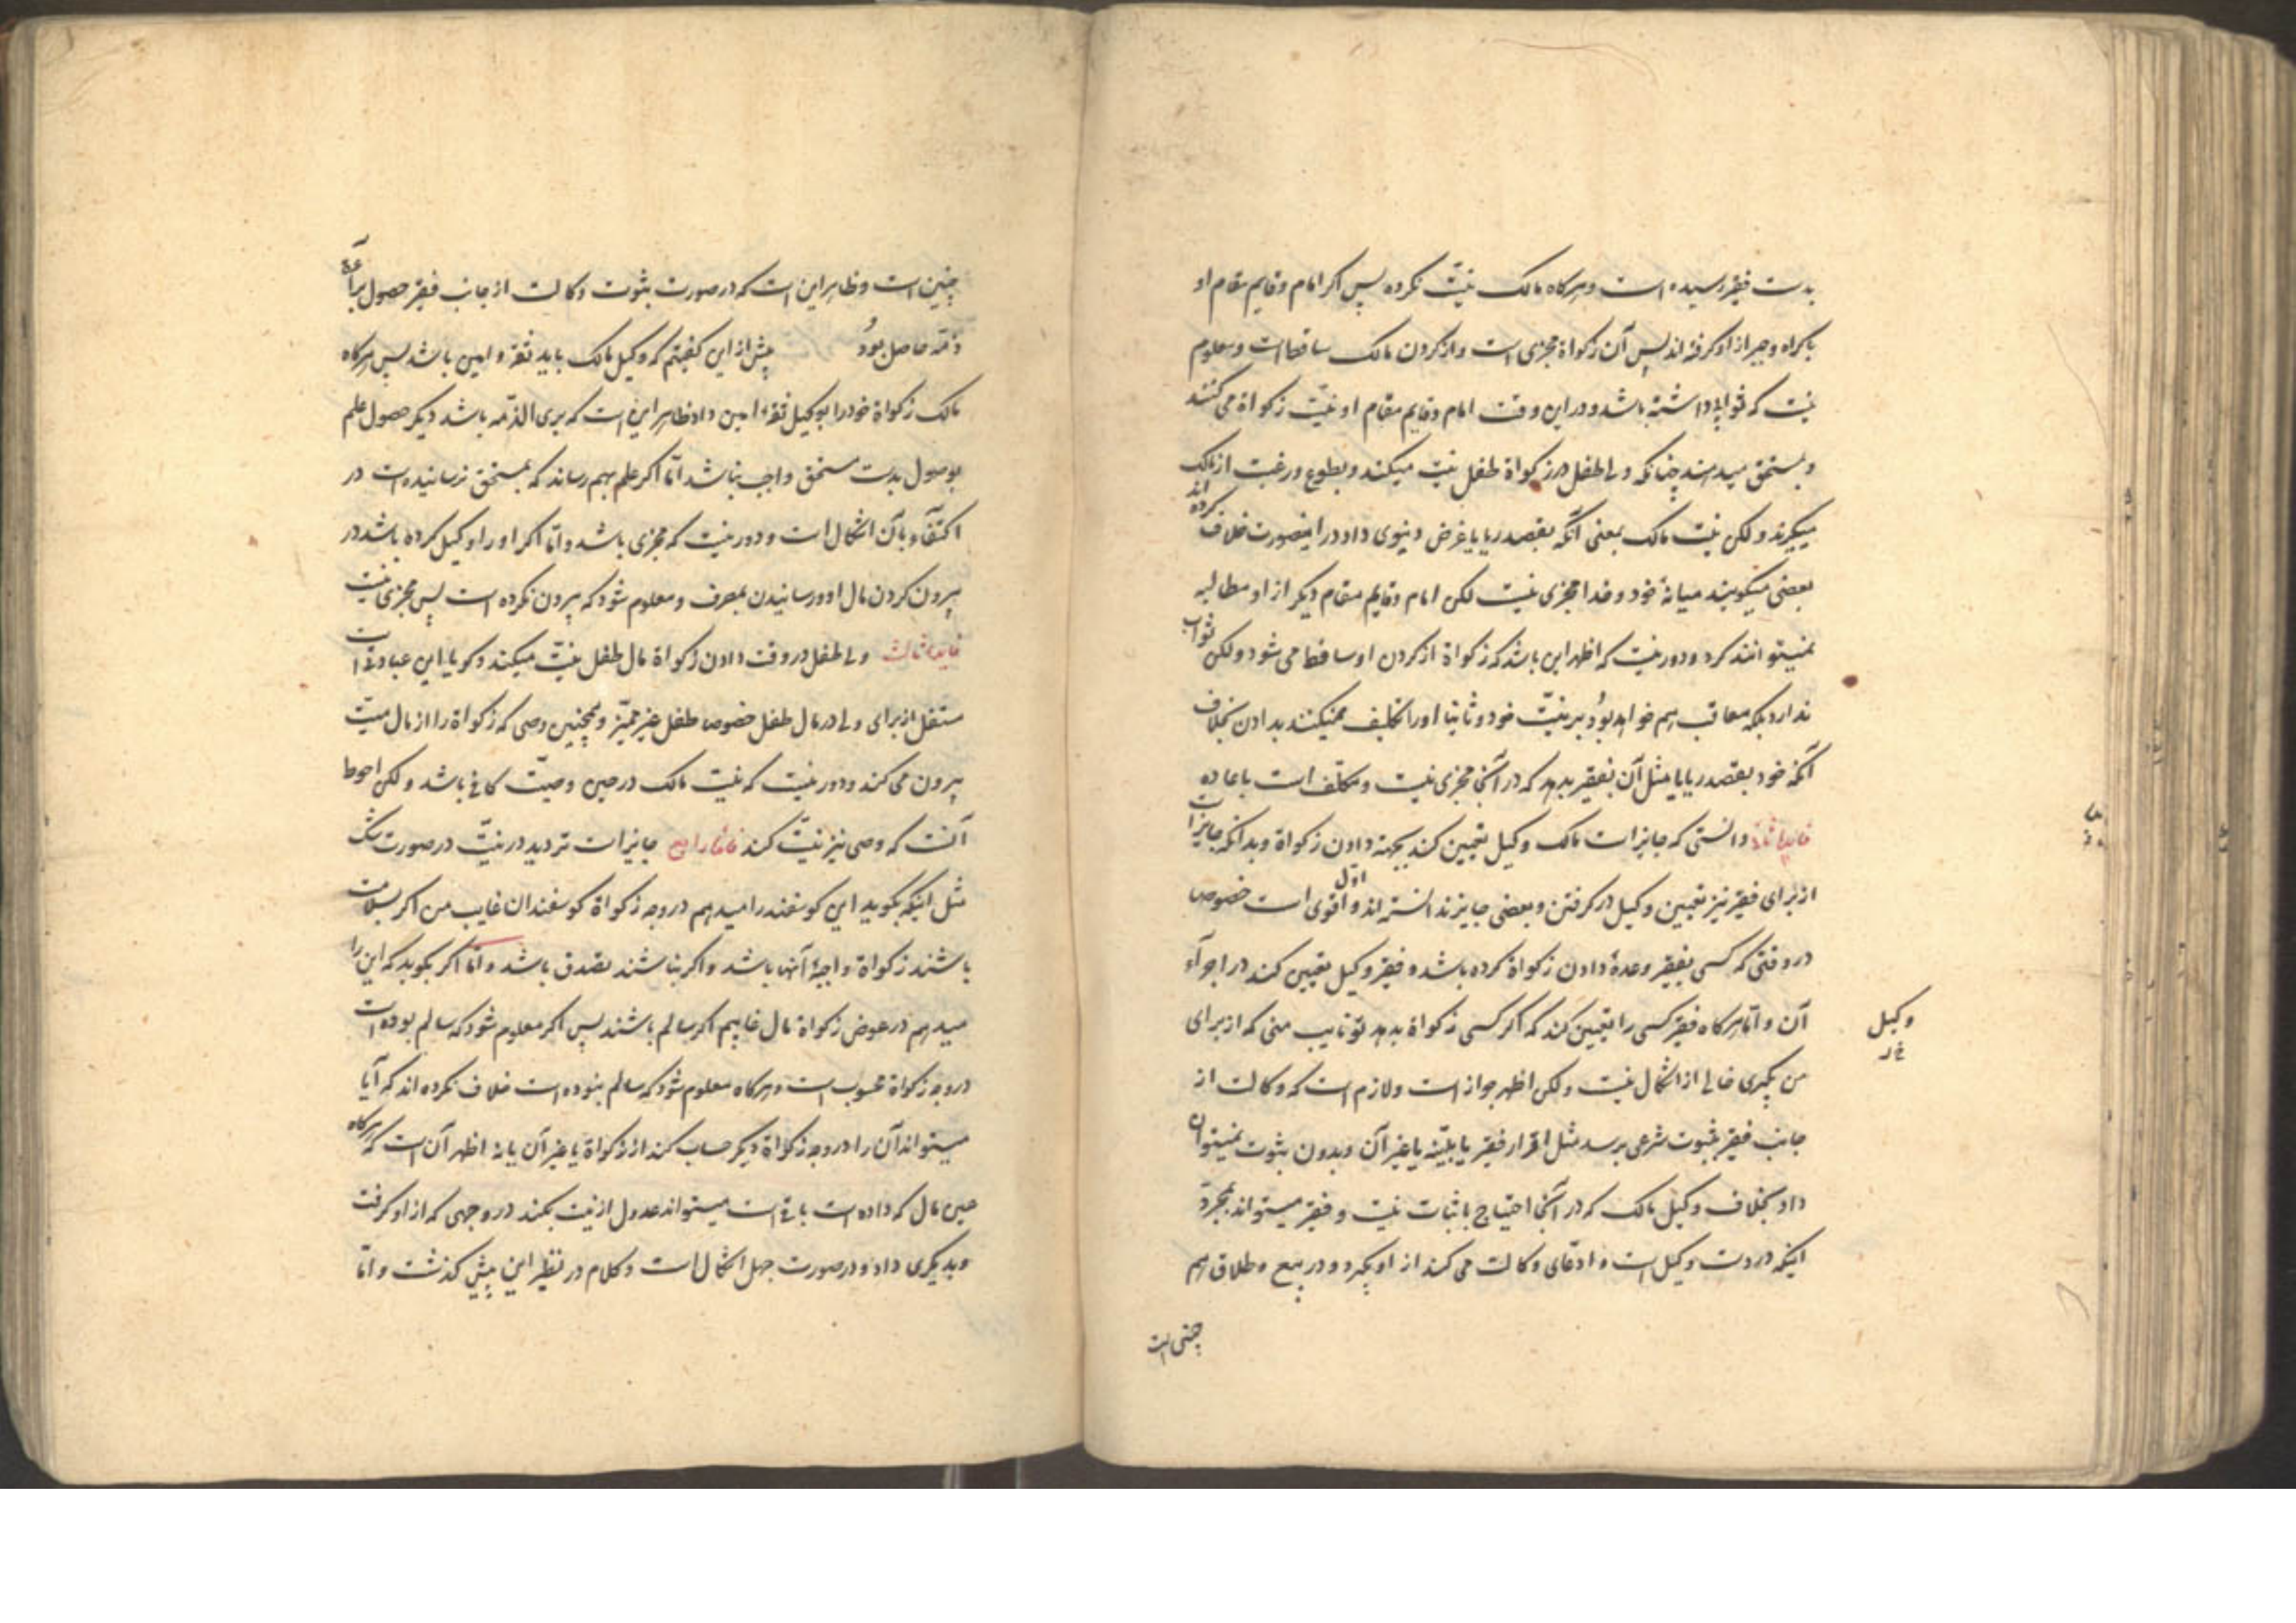 بدست فقیر رسیده است و هرکاه مالک نیّت نکرده پس اکر امام و قایم مقام او
باکراه و جبر از او کرفته اند پس آن زکواة مجزی است و از کردن مالک ساقط است و معلوم
نیست که ثوابی داشته باشد و در این وقت امام و قایم مقام او نیّت زکواة می کنند
و بمستحق میدهند چنانکه ولی طفل در زکواة طفل نیت میکند و بطوع و رغبت از مالک
میکیرند ولکن نیت مالک بمعنی آنکه بقصد ریا یا غرض دنیوی داد در اینصورت خلاف کرده اند
بعضی میکویند میانهٔ خود و خدا مجزی نیست لکن امام و قایم مقام دیکر از او مطالبه
نمیتوانند کرد و دور نیست که اظهر این باشد که زکواة از کردن او ساقط می شود ولکن ثواب
ندارد بلکه معاقب هم خواهد بود بر نیّت خود و ثانیا او را تکلیف نمیکنند بدادن بخلاف
آنکه خود بقصد ریا یا مثل آن بفقیر بدهد که در آنجا مجزی نیست و مکلّف است باعاده
فایدهٔ ثانیه دانستی که جایز است مالک وکیل تعیین کند بجهة دادن زکواة و بدانکه جایز است
از برای فقیر نیز تعیین وکیل در کرفتن و بعضی جایز ندانسته اند و اوّل اقوی است خصوص
در وقتی که کسی بفقیر وعدهٔ دادن زکواة کرده باشد و فقیر وکیل تعیین کند در اجرآء
آن و امّا هرکاه فقیر کسی را تعیین کند که اکر کسی زکواة بدهد تو نایب منی که از برای
وکیل
من بکیری خالی از اشکال نیست ولکن اظهر جواز است و لازم است که وکالت از
جانب فقیر بثبوت شرعی برسد مثل اقرار فقیر یا بیّنه یا غیر آن و بدون ثبوت نمیتوان
داد بخلاف وکیل مالک که در آنجا احتیاج باثبات نیست و فقیر میتواند بمجرّد
اینکه در دست وکیل است و ادّعای وکالت می کند از او بکیرد و در بیع و طلاق هم
چنین است
چنین است و ظاهر این است که در صورت ثبوت وکالت از جانب فقیر حصول برآءة
ذمّه حاصل بودُ پیش از این کفتیم که وکیل مالک باید ثقه و امین باشد پس هرکاه
مالک زکواة خود را بوکیل ثقهٔ امین داد ظاهر این است که بری الذمّه باشد دیکر حصول علم
بوصول بدست مستحق واجب نباشد امّا اکر علم بهم رساند که بمستحق نرسانیده است در
اکتفآء بآن اشکال است و دور نیست که مجزی باشد و امّا اکر او را وکیل کرده باشد در
بیرون کردن مال او و رسانیدن بمصرف و معلوم شود که بیرون نکرده است پس مجزی نیست
فایدهٔ ثالث ولی طفل در وقت دادن زکواة مال طفل نیّت میکند و کویا این عبادتی است
مستقل از برای ولی در مال طفل خصوصا طفل غیر ممیّز و همچنین وصی که زکواة را از مال میّت
بیرون می کند و دور نیست که نیّت مالک در حین وصیّت کافی باشد ولکن احوط
آنست که وصی نیز نیّت کند فایدهٔ رابع جایز است تردید در نیّت در صورت شک
مثل اینکه بکوید این کوسفند را میدهم در وجه زکواة کوسفندان غایب من اکر بسلامت
باشند زکواة واجبهٔ آنها باشد و اکر نباشند تصدق باشد و امّا اکر بکوید که این را
میدهم در عوض زکواة مال غایبم اکر سالم باشند پس اکر معلوم شود که سالم بوده است
در وجه زکواة محسوب است و هرکاه معلوم شود که سالم نبوده است خلاف کرده اند که آیا
میتواند آن را در وجه زکواة دیکر حساب کند از زکواة یا غیر آن یا نه اظهر آن است که هرکاه
عین مال که داده است باقی است میتواند عدول از نیت بکند در وجهی که از او کرفت
و بدیکری داد و در صورت جهل اشکال است و کلام در نظیر این پیش کذشت و امّا